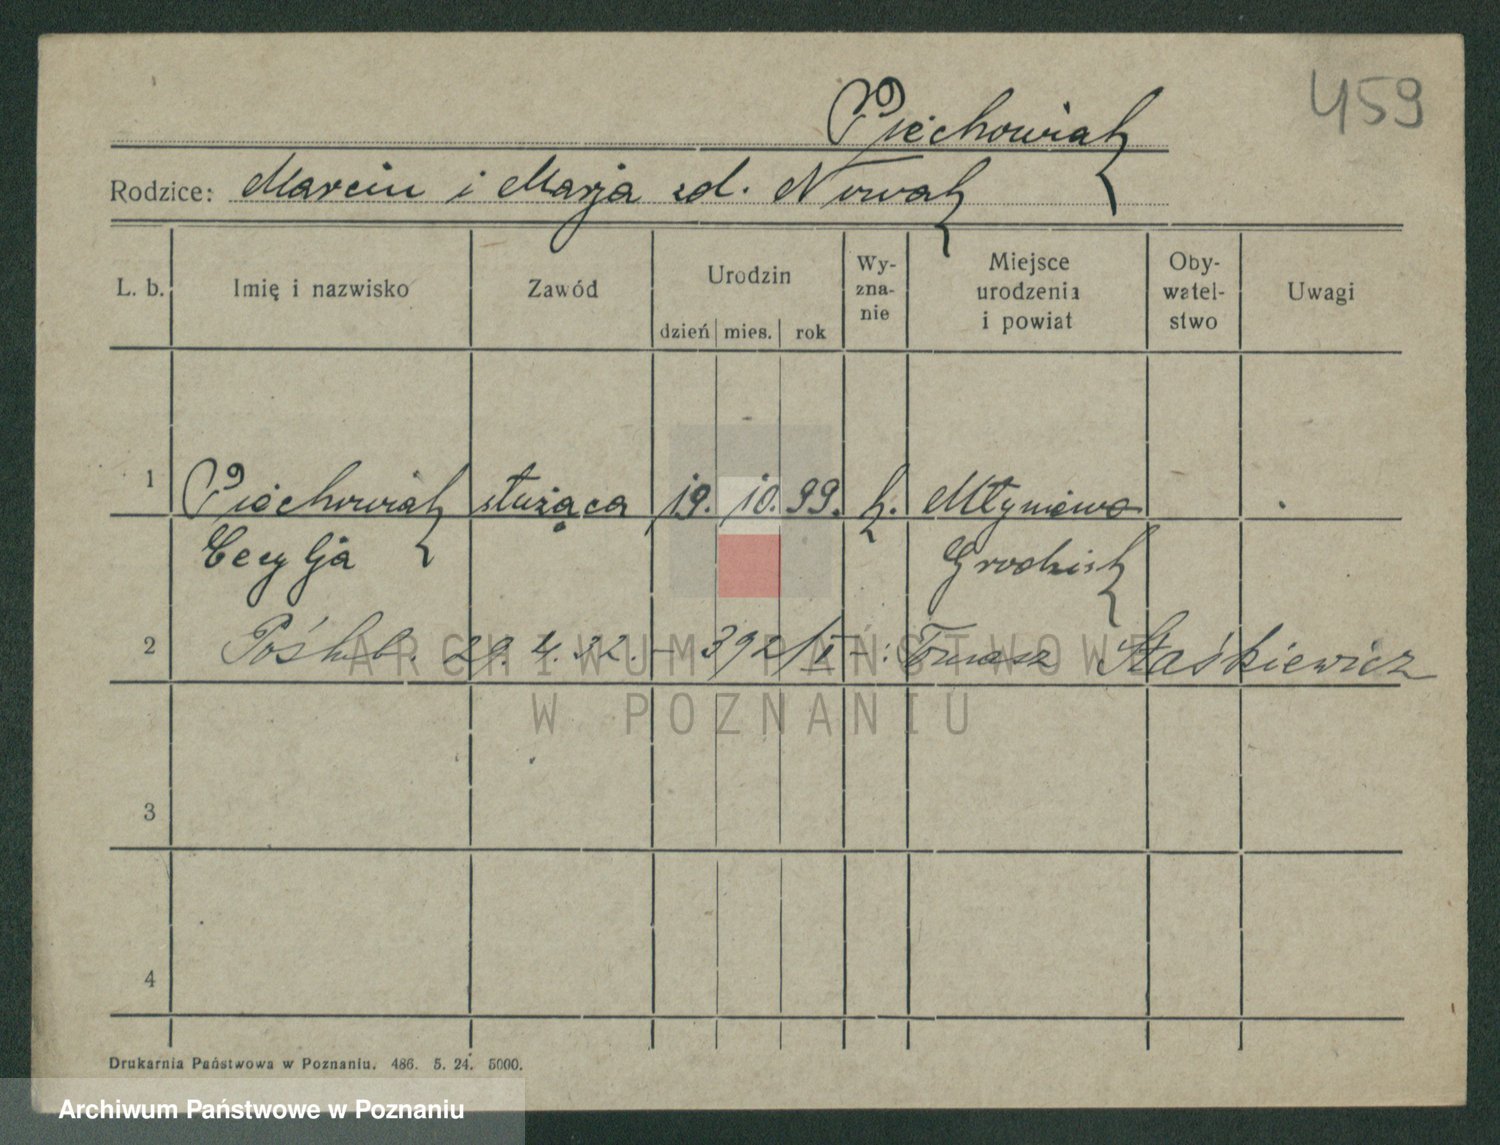 459
Piechowiak
Rodzice: Marcin i Marja zd. Nowak
L. b. Imię i nazwisko Zawód Urodzin dzień mies. rok Wy-zna-nie Miejsce urodzenia i powiat Oby-watel-stwo Uwagi
1 Piechowiak służąca 19. 10. 99. k. Młyniewo
Cecylja Grodzisk
2 Poślub. 29. 4. 32. – 392/I –: Tomasz Staśkiewicz
ARCHIWUM PAŃSTWOWE
W POZNANIU
3
4
Drukarnia Państwowa w Poznaniu. 486. 5. 24. 5000.
Archiwum Państwowe w Poznaniu